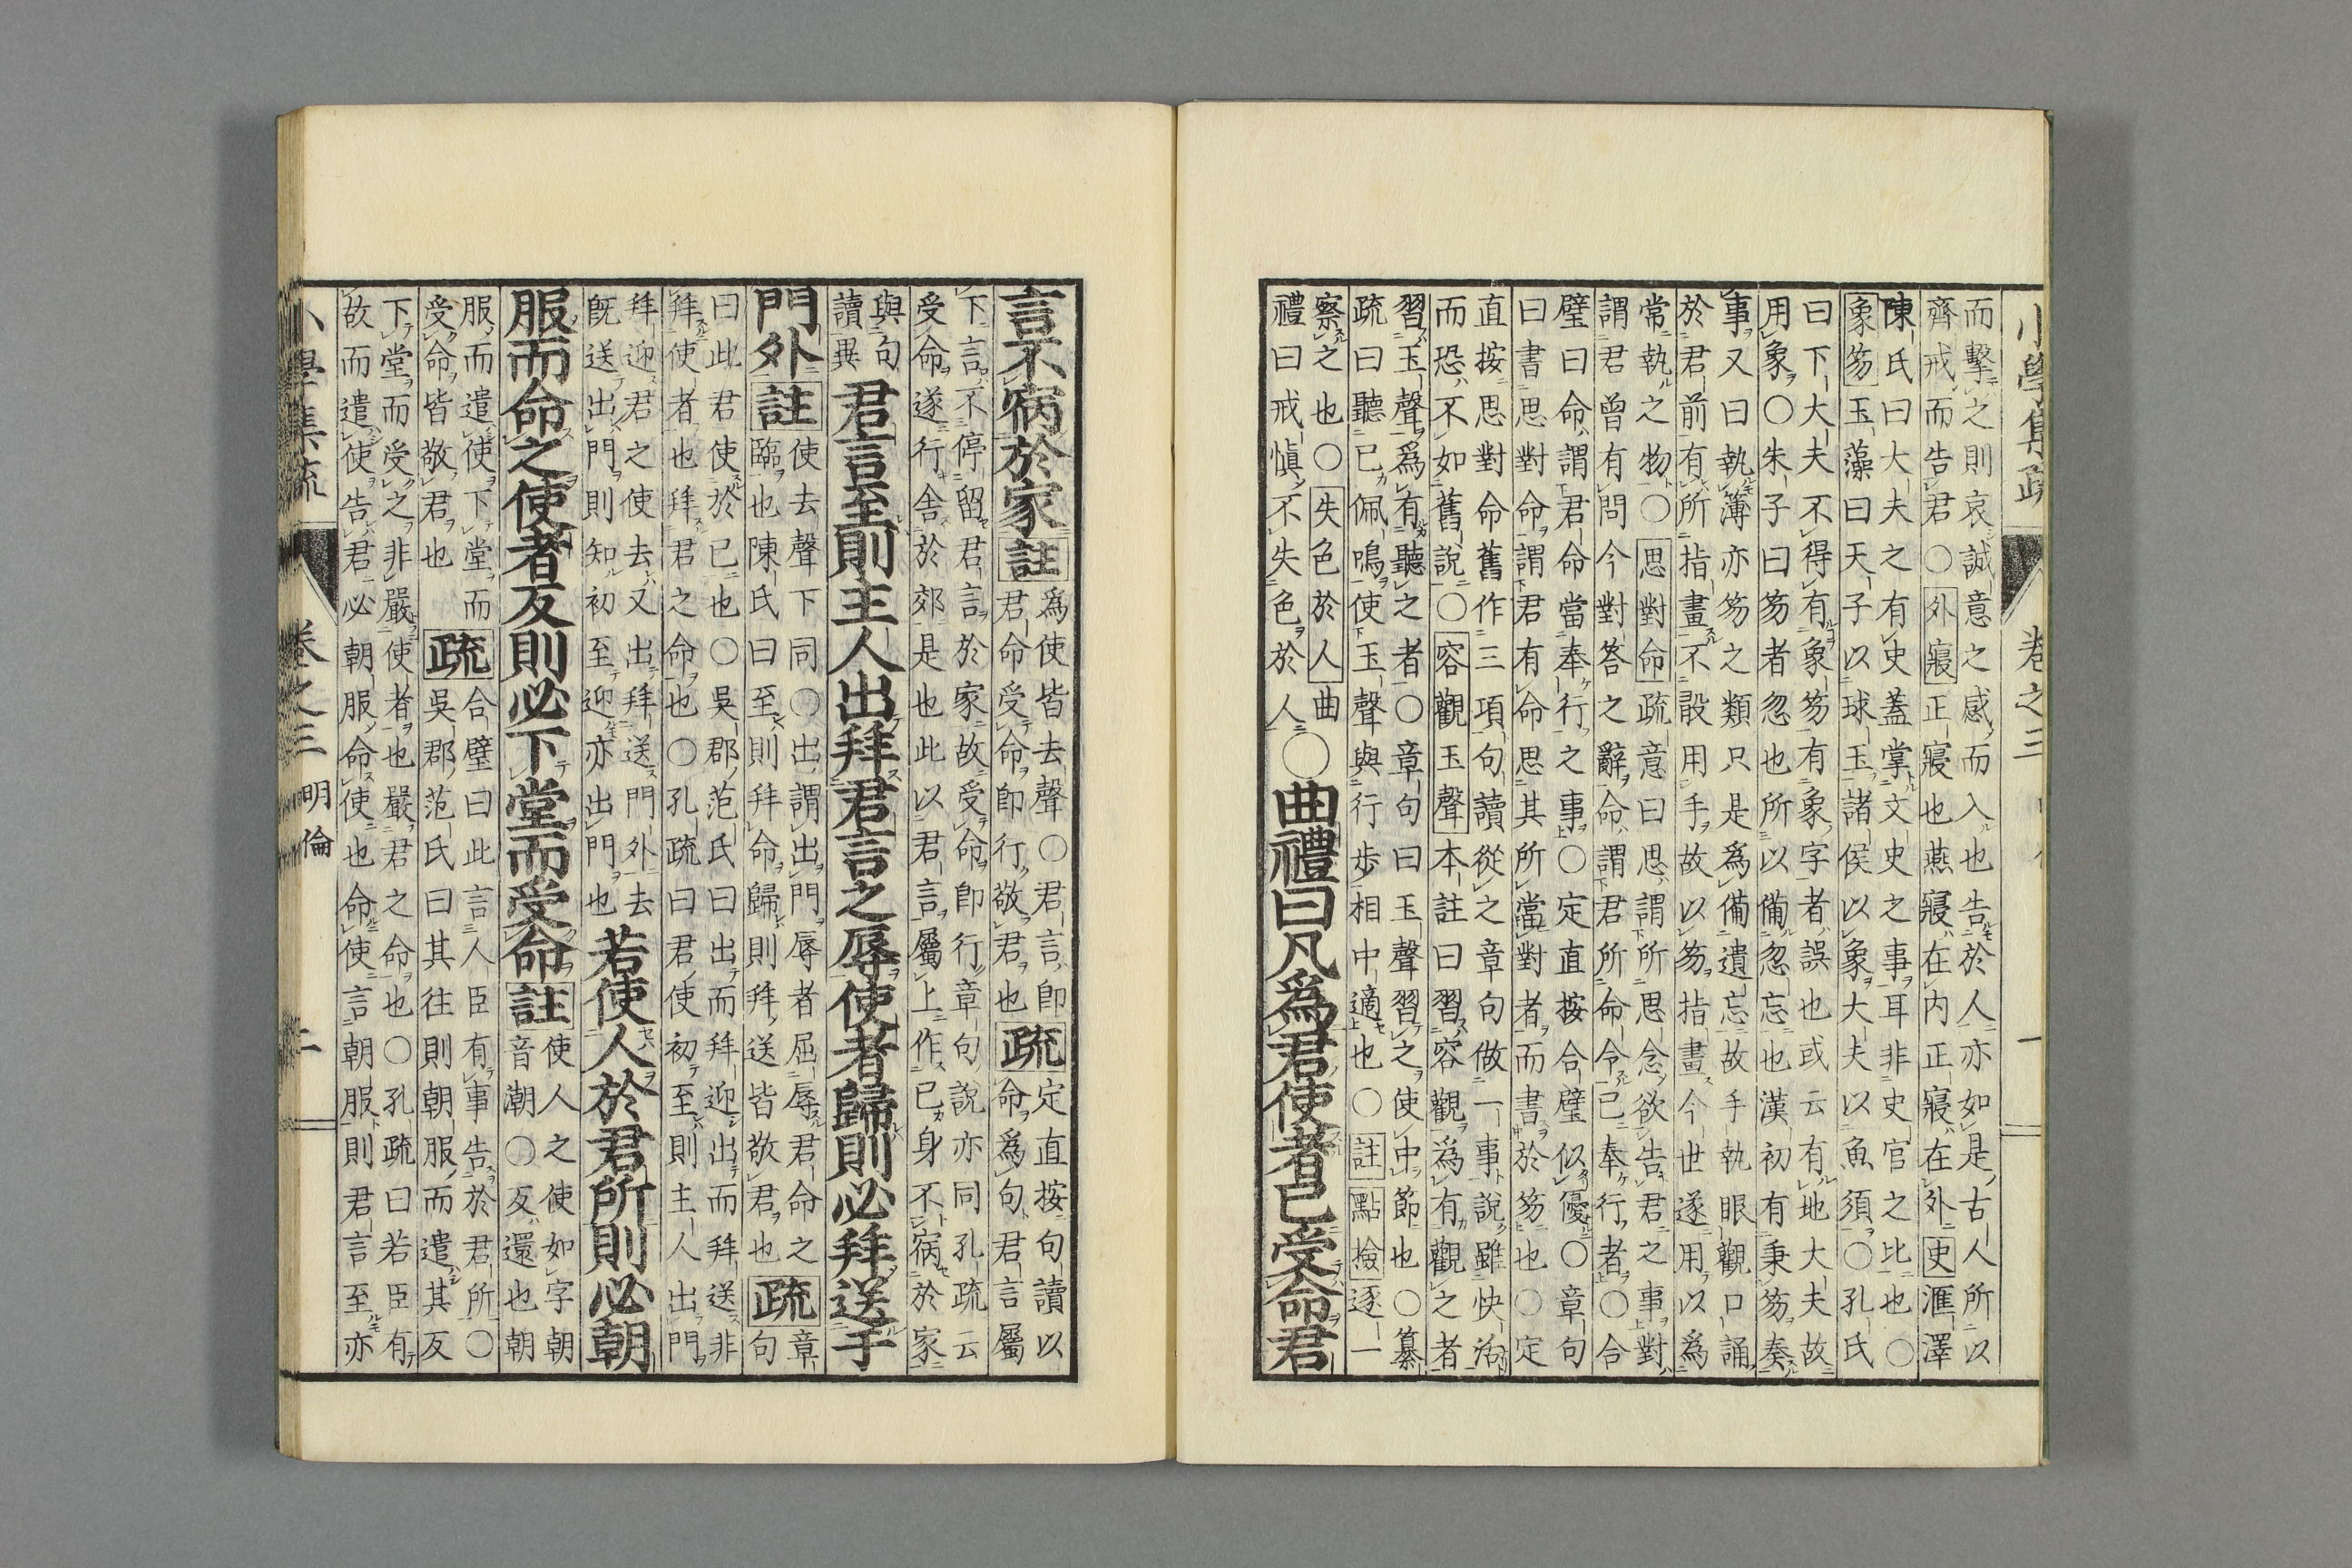 小學集疏 卷之三 一
而擊之則哀誠意之感而入也告於人亦如是古人所以
齊戒而告君○外寢正寢也燕寢在内正寢在外史滙澤
陳氏曰大夫之有史蓋掌文史之事耳非史官之比也○
象笏玉藻曰天子以球玉諸侯以象大夫以魚須○孔氏
曰下大夫不得有象笏有象字者誤也或云有地大夫故
用象○朱子曰笏者忽也所以備忽忘也漢初有秉笏奏
事又曰執簿亦笏之類只是爲備遺忘故手執眼觀口誦
於君前有所指畫不設用手故以笏指畫今世遂用以爲
常執之物○思對命疏意曰思謂所思念欲告君之事對
謂君曾有問今對答之辭命謂君所命令己奉行者○合
璧曰命謂君命當奉行之事○定直按合璧似優○章句
曰書思對命謂君有命思其所當對者而書於笏也○定
直按思對命舊作三項句讀從之章句做一事說雖快活
而恐不如舊說○容觀玉聲本註曰習容觀爲有觀之者
習玉聲爲有聽之者○章句曰玉聲習之使中節也○纂
疏曰聽己佩鳴使玉聲與行步相中適也○註點檢逐一
察之也○失色於人曲
禮曰戒愼不失色於人○曲禮曰凡爲君使者已受命君
言不宿於家註爲使皆去聲○君言卽
君命受命卽行敬君也疏定直按句讀以
命爲句君言屬
下言不停留君言於家故受命卽行章句說亦同孔疏云
受命遂行舍於郊是也此以君言屬上作己身不宿於家
與句
讀異君言至則主人出拜君言之辱使者歸則必拜送于
門外註使去聲下同○出謂出門辱者屈辱君命之
臨也陳氏曰至則拜命歸則拜送皆敬君也疏章
句
曰此君使於己也○吳郡范氏曰出而拜迎出而拜送非
拜使者也拜君之命也○孔疏曰君使初至則主人出門
拜迎君之使去又出拜送門外去
旣送出門則知初至迎亦出門也若使人於君所則必朝
服而命之使者反則必下堂而受命註使人之使如字朝
音潮○反還也朝
服而遣使下堂而
受命皆敬君也疏合璧曰此言人臣有事告於君所○
吳郡范氏曰其往則朝服而遣其反
下堂而受之非嚴使者也嚴君之命也○孔疏曰若臣有
故而遣使告君必朝服命使也命使言朝服則君言至亦
小學集疏 卷之三 明倫 二